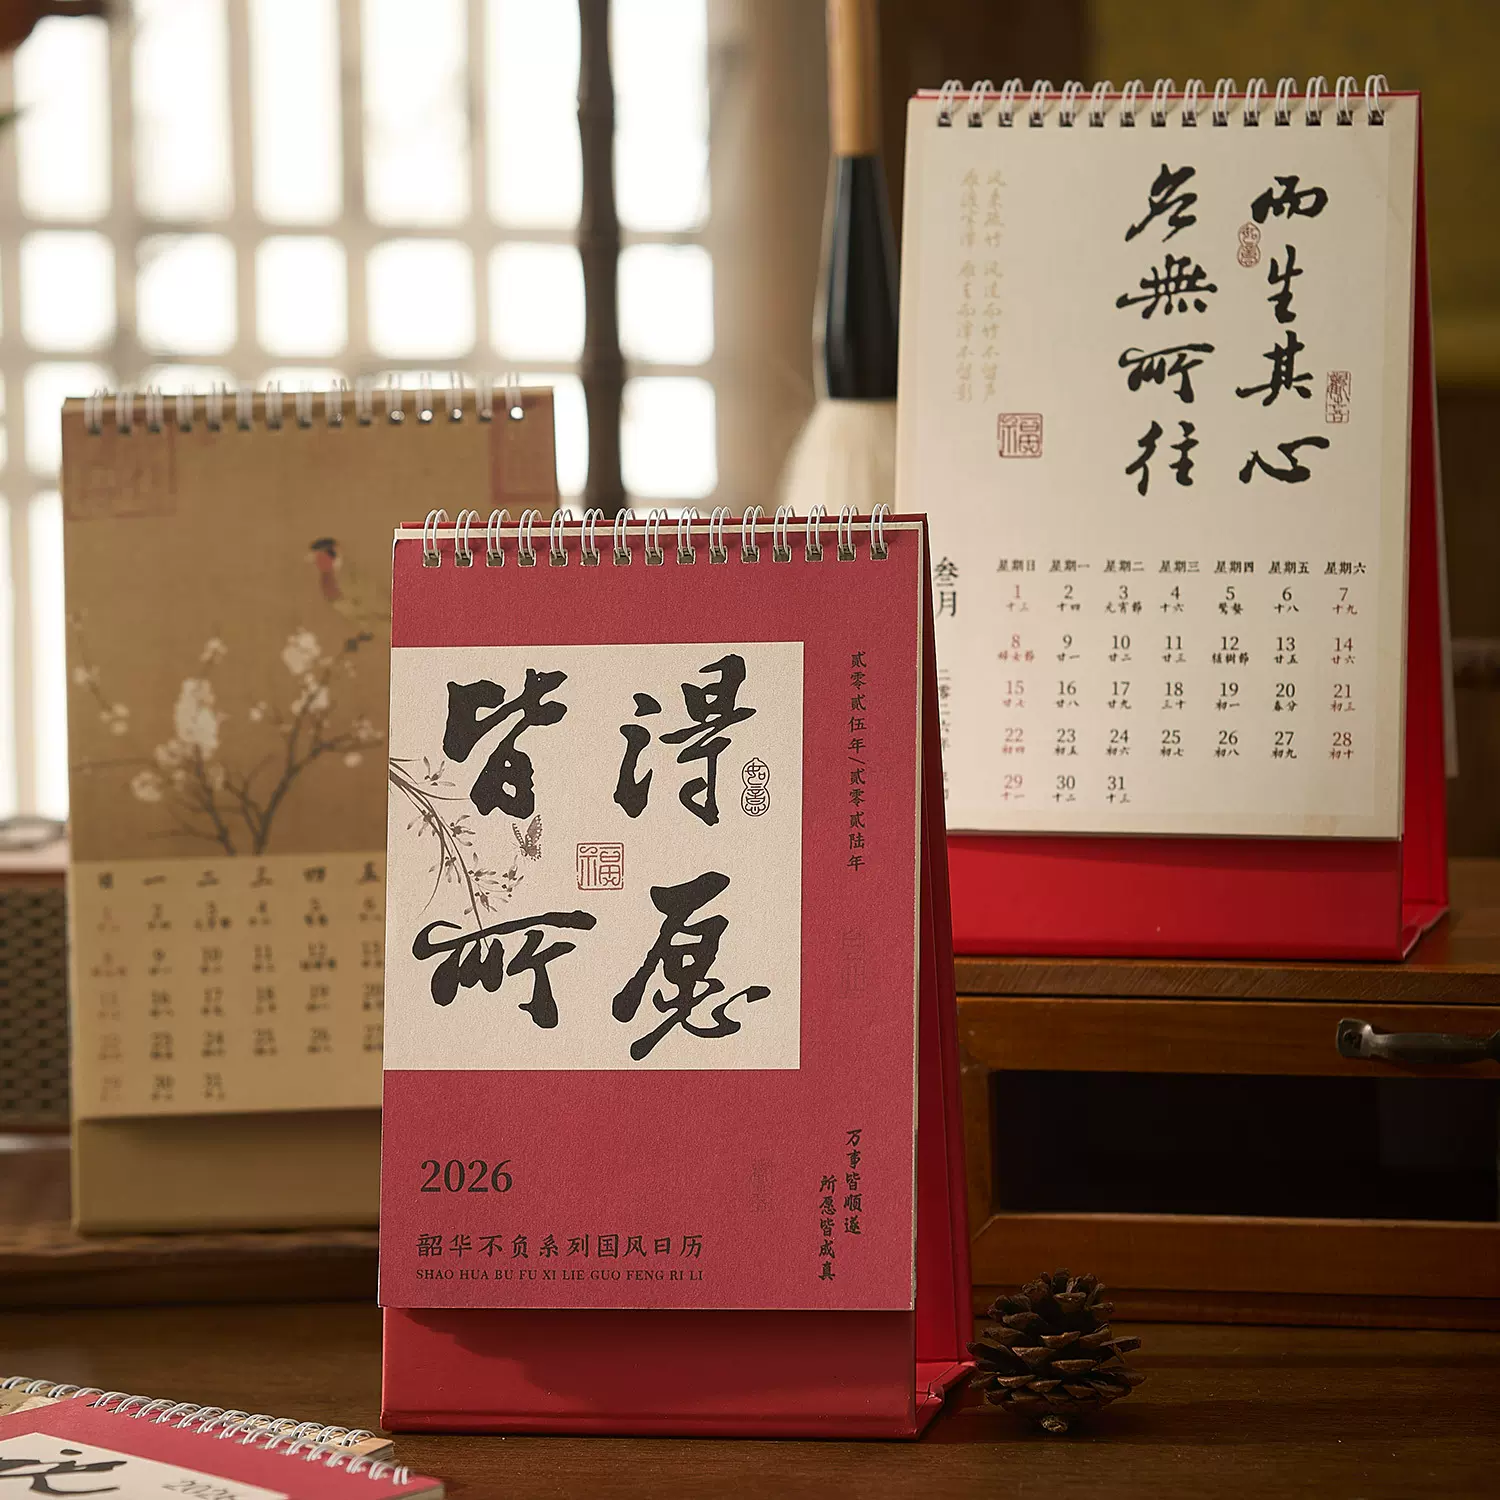 皆得
所愿
如意
福
贰零贰伍年/贰零贰陆年
万事皆顺遂
所愿皆成真
2026
韶华不负系列国风日历
SHAO HUA BU FU XI LIE GUO FENG RI LI
而生其心
無所往
如意
风来疏竹 风过而竹不留声
雁渡寒潭 雁去而潭不留影
福
叁月
二零二六年
星期日 星期一 星期二 星期三 星期四 星期五 星期六
1 2 3 4 5 6 7
十三 十四 元宵節 十六 驚蟄 十八 十九
8 9 10 11 12 13 14
婦女節 廿一 廿二 廿三 植樹節 廿五 廿六
15 16 17 18 19 20 21
廿七 廿八 廿九 三十 初一 春分 初三
22 23 24 25 26 27 28
初四 初五 初六 初七 初八 初九 初十
29 30 31
十一 十二 十三
一 二 三 四 五
1 2 3 4 5 6
8 9 10 11 12 13
15 16 17 18 19 20
22 23 24 25 26 27
29 30 31
2026